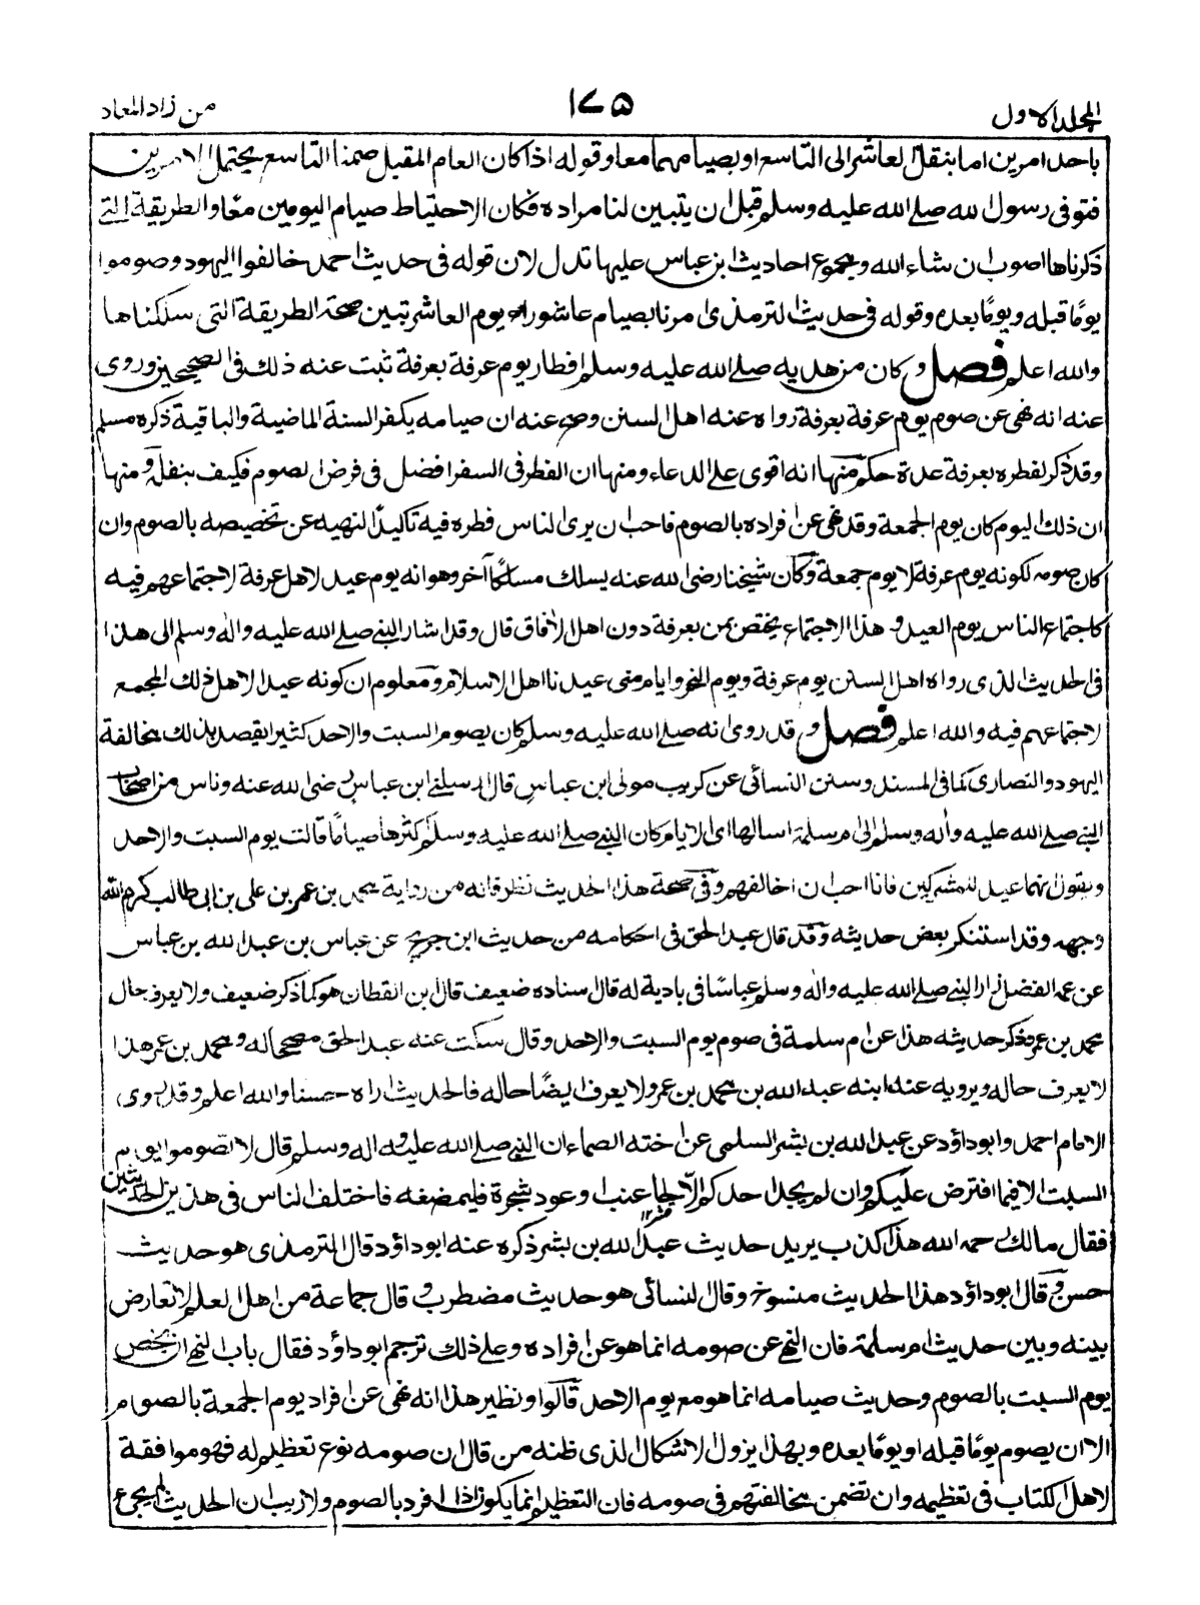 المجلد الاول
١٧٥
من زاد المعاد
باحد امرين اما بنقل العاشر الى التاسع او بصيامهما معا وقوله اذا كان العام المقبل صمنا التاسع يحتمل الامرين
فتوفى رسول الله صلے الله عليه وسلم قبل ان يتبين لنا مراده فكان الاحتياط صيام اليومين معًا والطريقة التے
ذكرناها اصوب ان شاء الله ومجموع احاديث ابن عباس عليها تدل لان قوله فى حديث احمد خالفوا اليهود وصوموا
يومًا قبله ويومًا بعده وقوله فى حديث الترمذى امرنا بصيام عاشوراء يوم العاشر تبين صحة الطريقة التى سلكناها
والله اعلم فصل وكان من هديه صلے الله عليه وسلم افطار يوم عرفة بعرفة ثبت عنه ذلك فى الصحيحين وروى
عنه انه نهى عن صوم يوم عرفة بعرفة رواه عنه اهل السنن وصح عنه ان صيامه يكفر السنة الماضية والباقية ذكره مسلم
وقد ذكر لفطره بعرفة عدة حكم منها انه اقوى على الدعاء ومنها ان الفطر فى السفر افضل فى فرض الصوم فكيف بنفله ومنها
ان ذلك اليوم كان يوم الجمعة وقد نهى عن افراده بالصوم فاحب ان يرى الناس فطره فيه تاكيدًا لنهيه عن تخصيصه بالصوم وان
كان صومه لكونه يوم عرفة لا يوم جمعة وكان شيخنا رضى الله عنه يسلك مسلكًا آخر وهو انه يوم عيد لاهل عرفة لاجتماعهم فيه
كاجتماع الناس يوم العيد وهذا الاجتماع يختص بمن بعرفة دون اهل الآفاق قال وقد اشار النبے صلے الله عليه واله وسلم الى هذا
فى الحديث الذى رواه اهل السنن يوم عرفة ويوم النحر وايام منى عيدنا اهل الاسلام ومعلوم ان كونه عيدا لاهل ذلك المجمع
لاجتماعهم فيه والله اعلم فصل وقد روى انه صلے الله عليه وسلم كان يصوم السبت والاحد كثيرا يقصد بذلك مخالفة
اليهود والنصارى كما فى المسند وسنن النسائى عن كريب مولى ابن عباس قال ارسلنے ابن عباس رضى الله عنه وناس من اصحاب
النبے صلے الله عليه واله وسلم الى ام سلمة اسالها اى الايام كان النبے صلے الله عليه وسلم اكثرها صيامًا قالت يوم السبت والاحد
ويقول انهما عيد للمشركين فانا احب ان اخالفهم وفى صحة هذا الحديث نظر فانه من رواية محمد بن عمر بن على بن ابى طالب كرم الله
وجهه وقد استنكر بعض حديثه وقد قال عبد الحق فى احكامه من حديث ابن جريج عن عباس بن عبد الله بن عباس
عن عمه الفضل زار النبے صلے الله عليه واله وسلم عباسًا فى بادية له قال اسناده ضعيف قال ابن القطان هو كما ذكر ضعيف ولا يعرف حال
محمد بن عمر فذكر حديثه هذا عن ام سلمة فى صوم يوم السبت والاحد وقال سكت عنه عبد الحق مصححا له ومحمد بن عمر هذا
لا يعرف حاله ويرويه عنه ابنه عبد الله بن محمد بن عمر ولا يعرف ايضًا حاله فالحديث اراه حسنا والله اعلم وقد روى
الامام احمد وابوداؤد عن عبد الله بن بشر السلمى عن اخته الصماء ان النبے صلے الله عليه واله وسلم قال لا تصوموا يوم
السبت الا فيما افترض عليكم وان لم يجد احدكم الا لحاء عنب او عود شجرة فليمضغه فاختلف الناس فى هذين الحديثين
فقال مالك رحمه الله هذا كذب يريد حديث عبد الله بن بشر ذكره عنه ابوداؤد قال الترمذى هو حديث
حسن وقال ابوداؤد هذا الحديث منسوخ وقال النسائى هو حديث مضطرب وقال جماعة من اهل العلم لا تعارض
بينه وبين حديث ام سلمة فان النهے عن صومه انما هو عن افراده وعلے ذلك ترجم ابوداؤد فقال باب النهے ان يخص
يوم السبت بالصوم وحديث صيامه انما هو مع يوم الاحد قالوا ونظير هذا انه نهى عن افراد يوم الجمعة بالصوم
الا ان يصوم يومًا قبله او يومًا بعده وبهذا يزول الاشكال الذى ظنه من قال ان صومه نوع تعظيم له فهو موافقة
لاهل الكتاب فى تعظيمه وان تضمن مخالفتهم فى صومه فان التعظيم انما يكون اذا افرد بالصوم ولا ريب ان الحديث لم يجئ